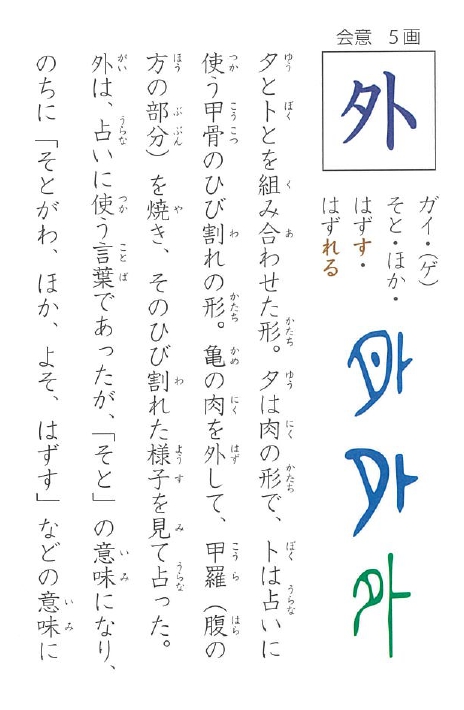 会意 5画
外
ガイ・(ゲ)
そと・ほか・
はずす・
はずれる
夕とトとを組み合わせた形。夕は肉の形で、トは占いに
使う甲骨のひび割れの形。亀の肉を外して、甲羅(腹の
方の部分)を焼き、そのひび割れた様子を見て占った。
外は、占いに使う言葉であったが、「そと」の意味になり、
のちに「そとがわ、ほか、よそ、はずす」などの意味に